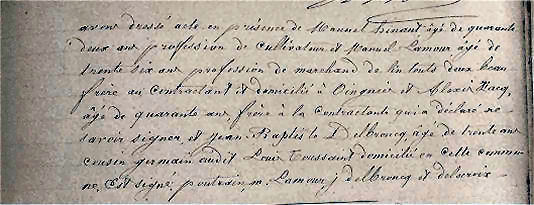 avons dressé acte en présence de Manuel hinaut âgé de quarante
deux ans profession de Cultivateur et Manuel Lamour âgé de
trente six ans profession de marchand de lin touts deux beau
frère au Contractant et domicilié à et Alexis Hacq,
âgé de quarante ans frère à la Contractante qui a déclaré ne
savoir signer, et jean Baptiste Delbroncq, âgé de trente ans
cousin germain audit Louis Toussaint domicilié en cette commu-
ne, Est signé m. Lamour, j delbroncq et